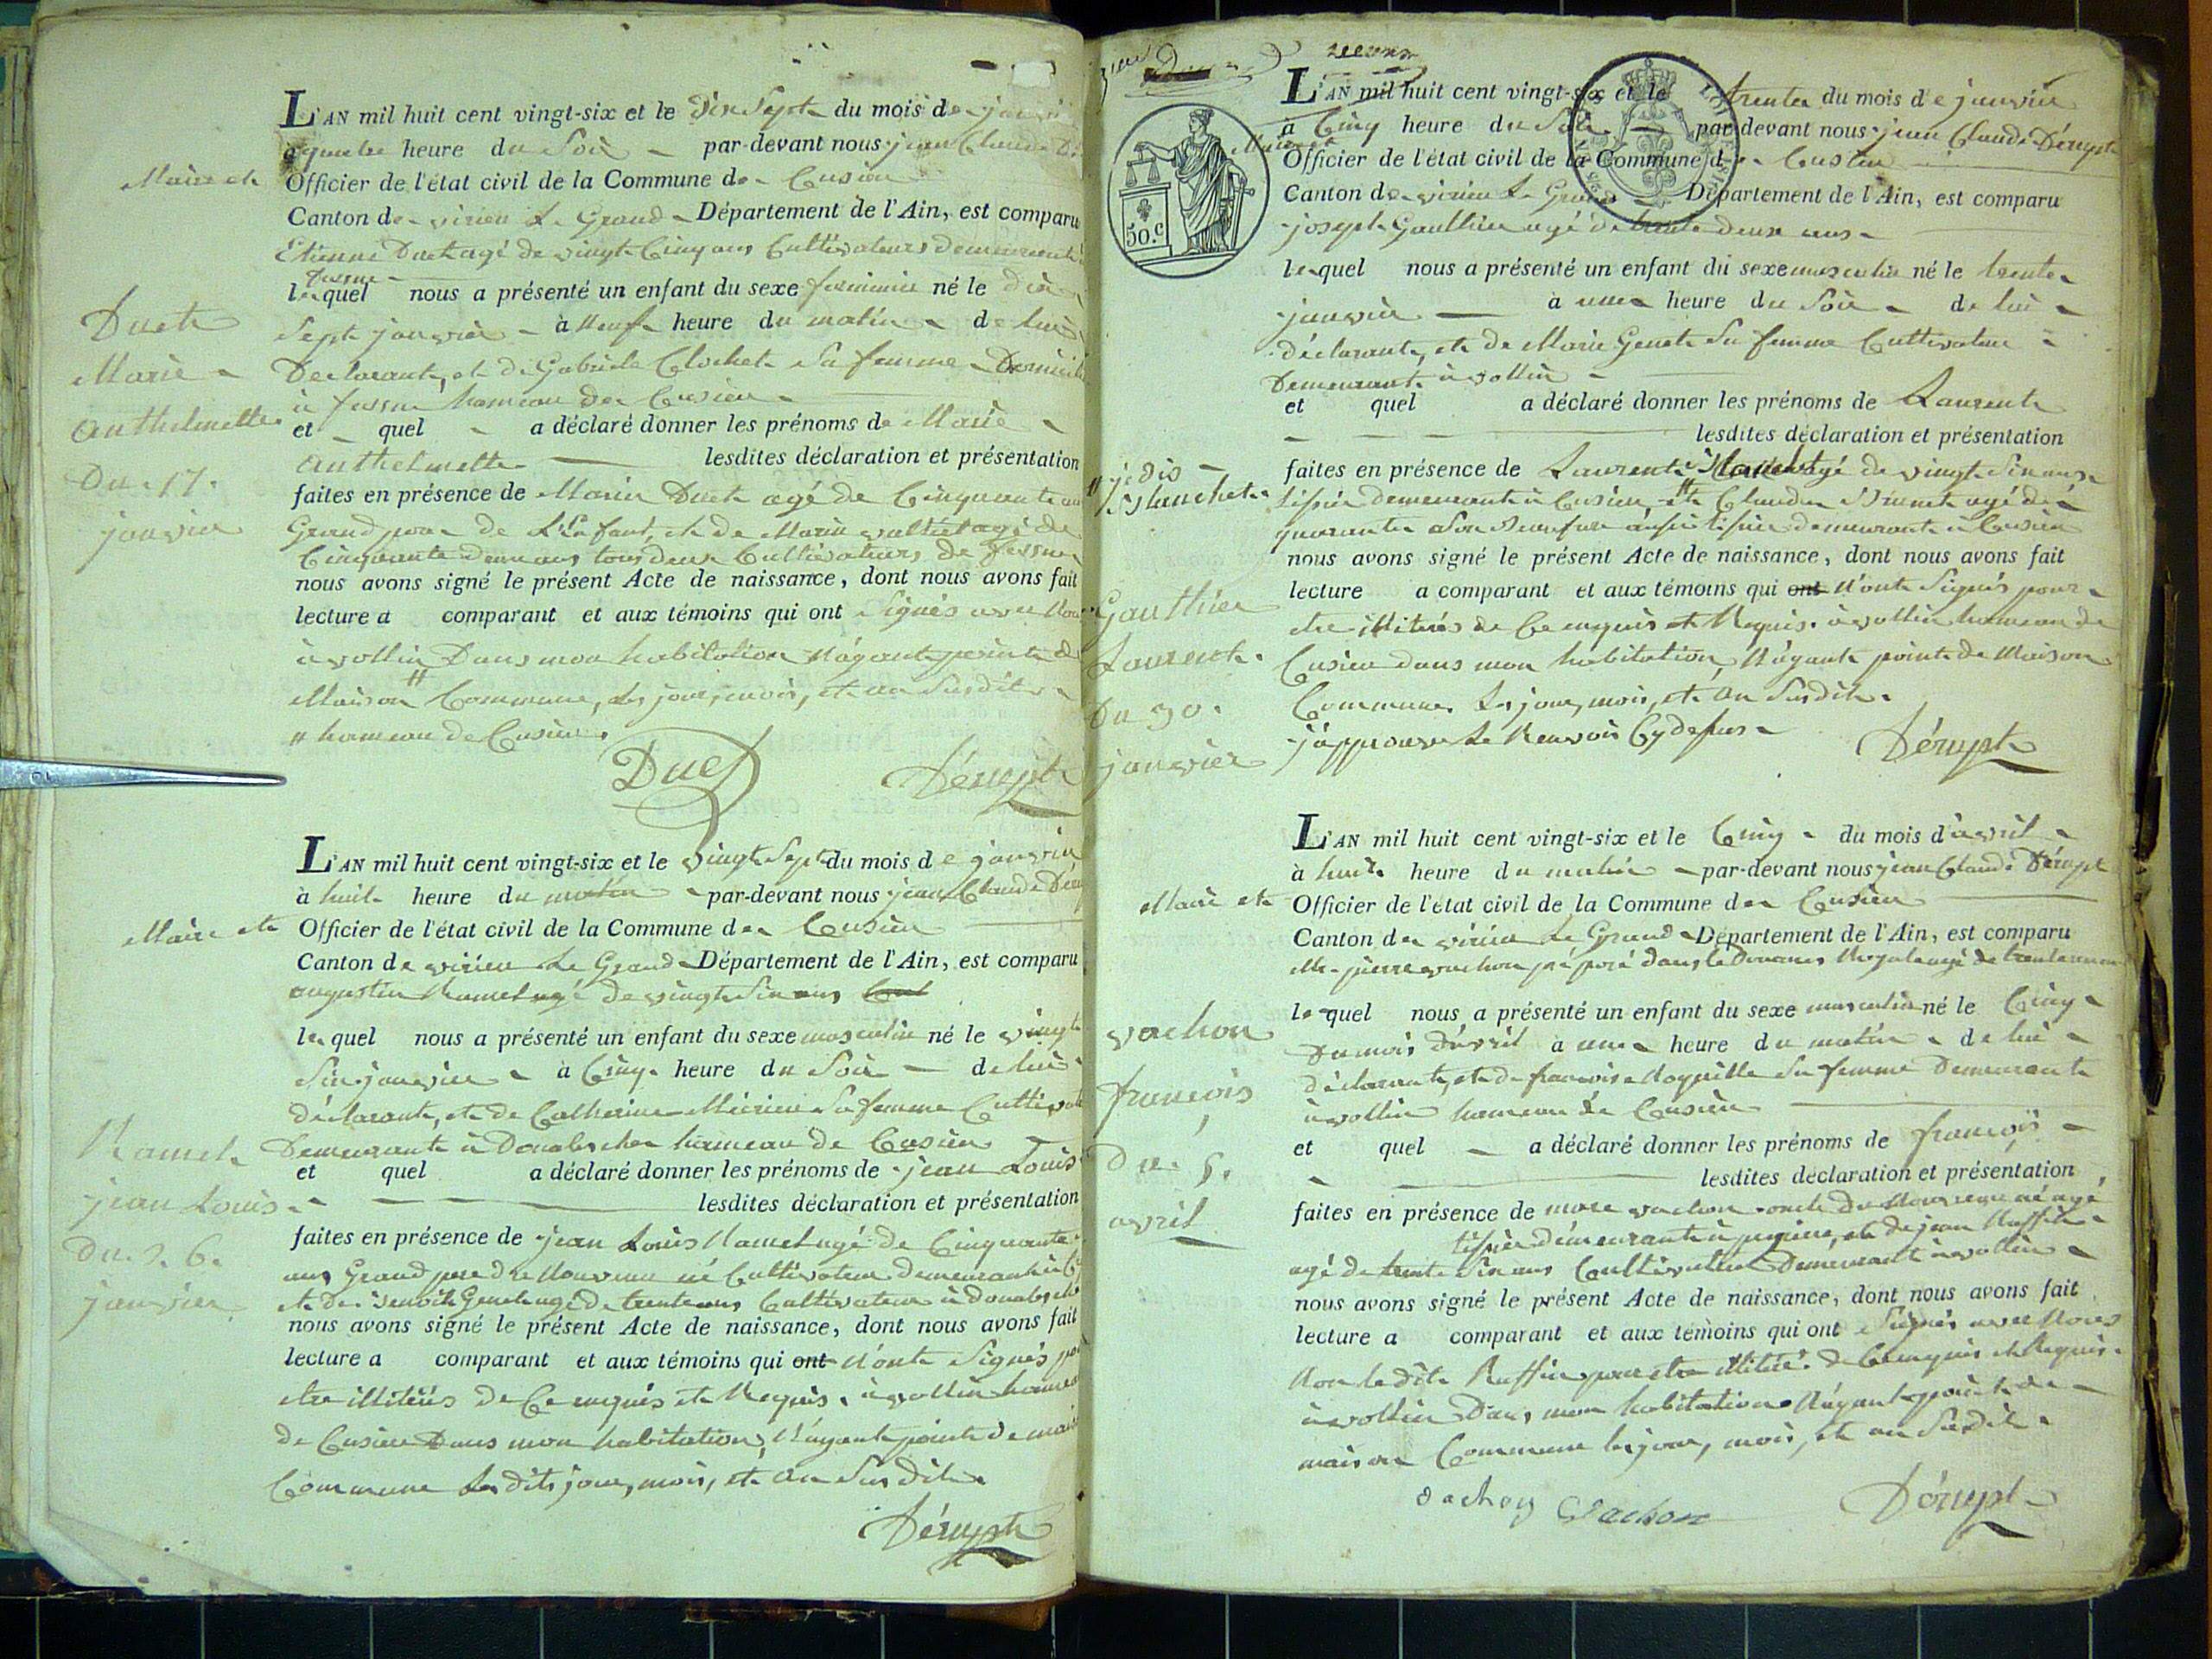 L'AN mil huit cent vingt-six et le dix Sept du mois de
a quatre heure du Soir par-devant nous jean Claude
Maire et Officier de l'état civil de la Commune de Cusieu
Canton de virieu Le Grand Département de l'Ain, est comparu
Etienne Duet agé de vingt Cinq ans Cultivateurs demeurant à
fessne
lequel nous a présenté un enfant du sexe feminin né le dix
Sept janvier à neuf heure du matin de lui
Declarant, et de Gabriele Clochet Sa femme
à fessne hameau de Cusieu
et quel a déclaré donner les prénoms de Marie
Anthelmette lesdites déclaration et présentation
faites en présence de Marin Duet agé de Cinquante
Grand pere de L'Enfant, et de Marin agé de
Cinquante deux ans tous deux Cultivateurs de fessne
nous avons signé le présent Acte de naissance, dont nous avons fait
lecture a comparant et aux témoins qui ont Signés avec Nous
à vollin Dans mon habitation N'ayant point de
Maison # Commune, Les jour, mois, et an Susdit
# hameau de Cusieu
Duet Dérupt
Duet
Marie
Anthelmette
Du 17.
janvier
L'AN mil huit cent vingt-six et le vingt Sept du mois de janvier
à huit heure du matin par-devant nous jean Claude
Maire et Officier de l'état civil de la Commune de Cusieu
Canton de virieu Le Grand Département de l'Ain, est comparu
augustin Ramel agé de vingt Six ans
lequel nous a présenté un enfant du sexe masculin né le vingt
Six janvier à Cinq heure du Soir de lui
déclarant, et de Catherine Sa femme
Demeurant à hameau de Cusieu
et quel a déclaré donner les prénoms de jean Louis
lesdites déclaration et présentation
faites en présence de jean Louis Ramel agé de Cinquante
ans Grand pere du Nouveau né Cultivateur demeurant à
et de Benoit Genet agé de trente ans Cultivateur à
nous avons signé le présent Acte de naissance, dont nous avons fait
lecture a comparant et aux témoins qui ont N'ont Signés
etre illitérés de Ce enquis et Requis. à vollin
de Cusieu Dans mon habitation, N'ayant point de
Commune Les dits jour, mois, et an Susdit
Dérupt
Ramel
jean Louis
Du 26.
janvier
L'AN mil huit cent vingt-six et le trente du mois de janvier
à Cinq heure du Soir par-devant nous jean Claude Dérupt
Officier de l'état civil de la Commune de Cusieu
Canton de virieu Le Grand Département de l'Ain, est comparu
joseph Gauthier agé de trente deux ans
lequel nous a présenté un enfant du sexe masculin né le trente
janvier à une heure du Soir de lui
déclarant, et de Marie Genet Sa femme Cultivateur
Demeurant à vollin
et quel a déclaré donner les prénoms de Laurent
lesdites déclaration et présentation
faites en présence de Laurent agé de vingt Six ans
tissier demeurant à Cusieu, # et Claude Brunet agé de
quarante aussi tissier demeurant à Cusieu
nous avons signé le présent Acte de naissance, dont nous avons fait
lecture a comparant et aux témoins qui ont N'ont Signés pour
etre illitérés de Ce enquis et Requis. à vollin hameau de
Cusieu dans mon habitation, N'ayant point de Maison
Commune Les jour, mois, et an Susdit.
j'approuve Le Renvoir Cy defsus
Dérupt
50.c
# je dis
Blanchet
Gauthier
Laurent
Du 30.
janvier
L'AN mil huit cent vingt-six et le Cinq du mois d'avril
à huit heure du matin par-devant nous jean Claude Dérupt
Maire et Officier de l'état civil de la Commune de Cusieu
Canton de virieu Le Grand Département de l'Ain, est comparu
Mr. pierre vachon préposé dans le Douanes Royale agé de
lequel nous a présenté un enfant du sexe masculin né le Cinq
Du mois d'avril à une heure du matin de lui
déclarant, et de francoise Sa femme Demeurant
à vollin hameau de Cusieu
et quel a déclaré donner les prénoms de francois
lesdites déclaration et présentation
faites en présence de marc vachon oncle du Nouveau né agé
tissier demeurant à, et de jean Ruffin
agé de trente Six ans Cultivateur Demeurant à vollin
nous avons signé le présent Acte de naissance, dont nous avons fait
lecture a comparant et aux témoins qui ont Signés avec Nous
Non le dit Ruffin pour etre illitéré de Ce enquis et Requis.
à vollin Dans mon habitation N'ayant point de
maison Commune les jour, mois, et an Susdit
vachon vachon Dérupt
vachon
francois
Du 5.
avril